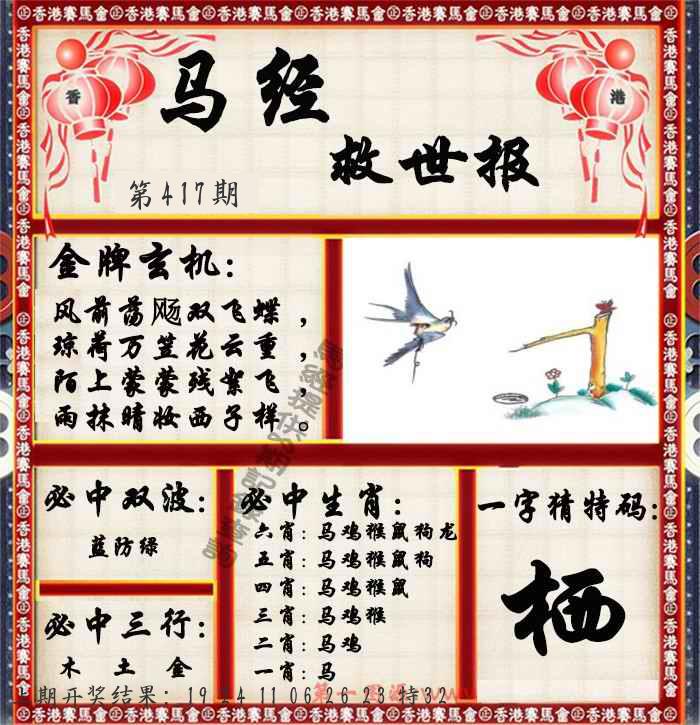 香港賽馬會
香 港
马经
救世报
第417期
金牌玄机：
风前荡飏双飞蝶，
琼荷万笠花云重，
陌上蒙蒙残絮飞，
雨抹晴妆西子样。
必中双波：
蓝防绿
必中三行：
木 土 金
必中生肖：
六肖：马鸡猴鼠狗龙
五肖：马鸡猴鼠狗
四肖：马鸡猴鼠
三肖：马鸡猴
二肖：马鸡
一肖：马
一字猜特码：
栖
期开奖结果：19 4 11 06 26 23 特32